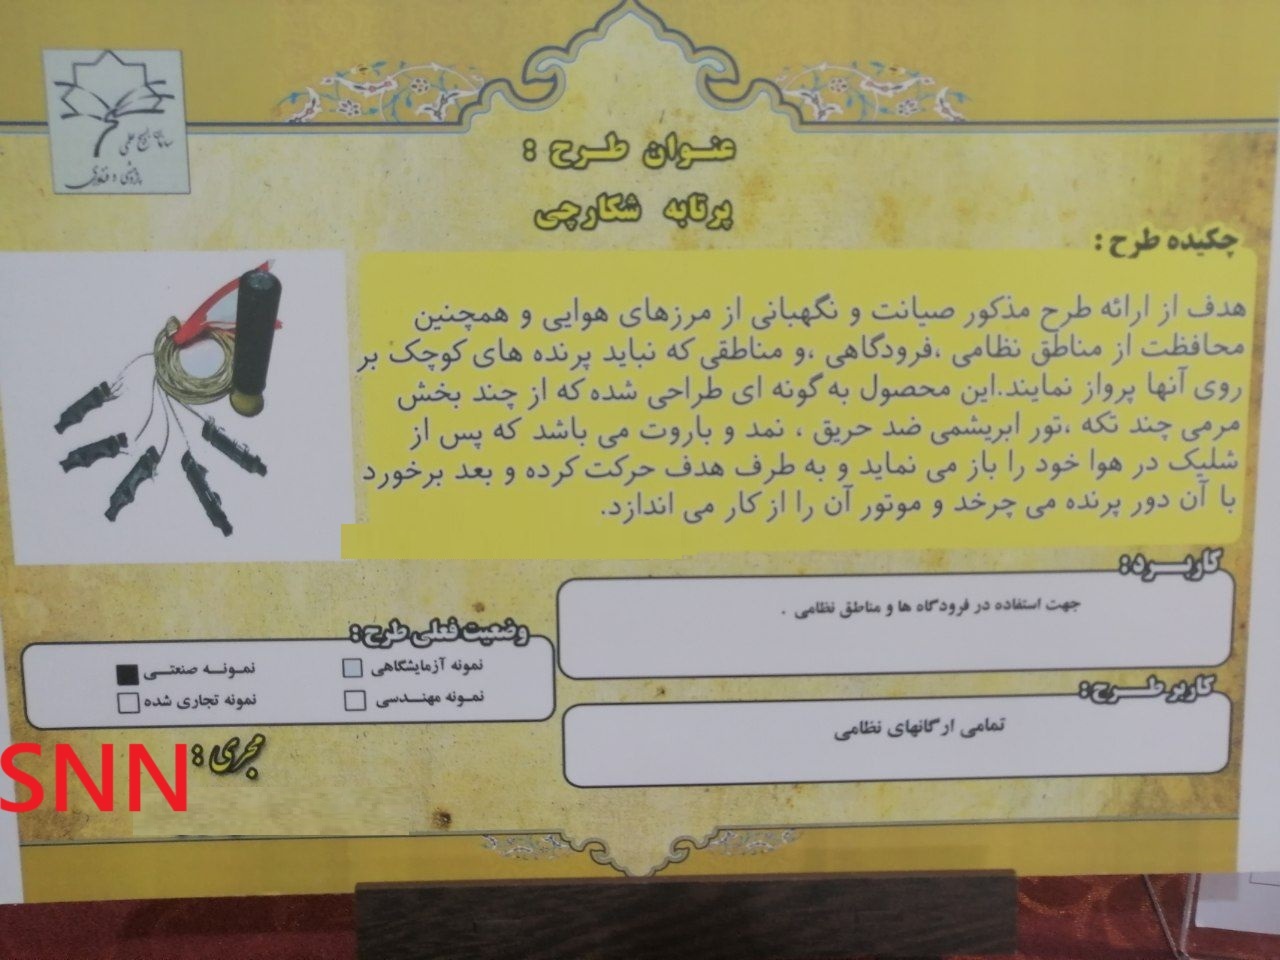 سازمان بسیج علمی
پژوهشی و فناوری
عنوان طرح :
پرتابه شکارچی
چکیده طرح :
هدف از ارائه طرح مذکور صیانت و نگهبانی از مرزهای هوایی و همچنین
محافظت از مناطق نظامی ،فرودگاهی ،و مناطقی که نباید پرنده های کوچک بر
روی آنها پرواز نمایند.این محصول به گونه ای طراحی شده که از چند بخش
مرمی چند تکه ،تور ابریشمی ضد حریق ، نمد و باروت می باشد که پس از
شلیک در هوا خود را باز می نماید و به طرف هدف حرکت کرده و بعد برخورد
با آن دور پرنده می چرخد و موتور آن را از کار می اندازد.
کاربرد:
جهت استفاده در فرودگاه ها و مناطق نظامی .
وضعیت فعلی طرح :
نمونه آزمایشگاهی
نمونه صنعتی
نمونه مهندسی
نمونه تجاری شده
کاربر طرح :
تمامی ارگانهای نظامی
مجری :
SNN